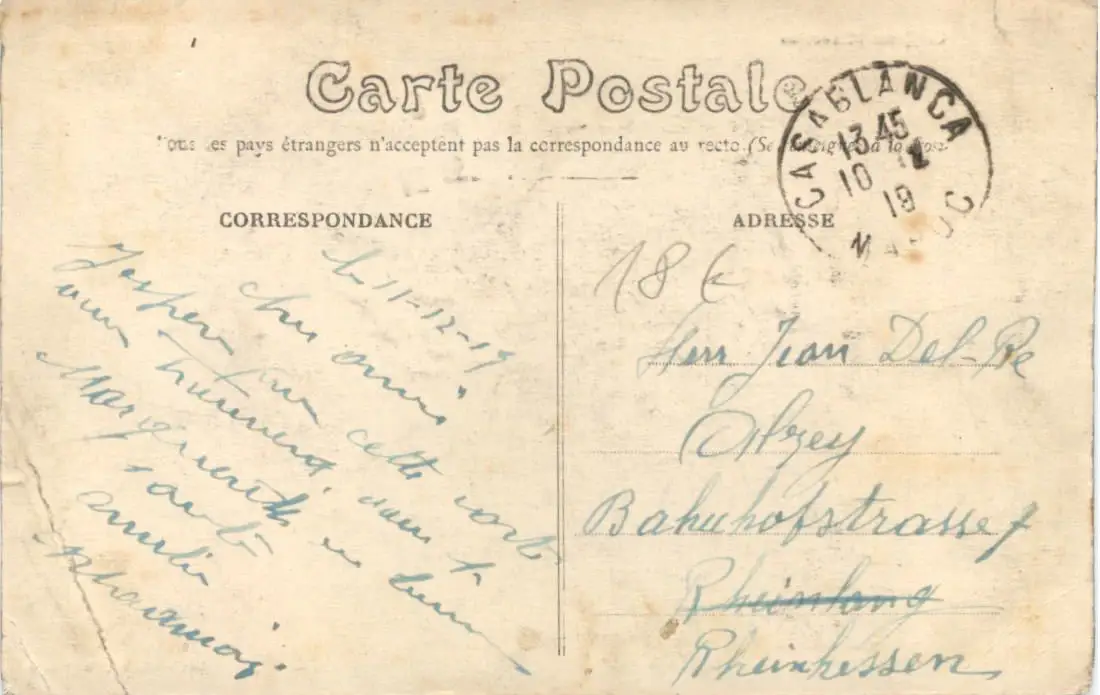 Carte Postale
Tous les pays étrangers n'acceptent pas la correspondance au recto (Se renseigner à la Poste
CASABLANCA
13 45
10 12
19
MAROC
CORRESPONDANCE
ADRESSE
le 11-12-19
cher amis
J'esper que cette carte
vous
Marguerite en bonne
santé
amelie
18
Herr Jean Del-Pre
Alzey
Bahnhofstrasse
Rheinland
Rheinhessen